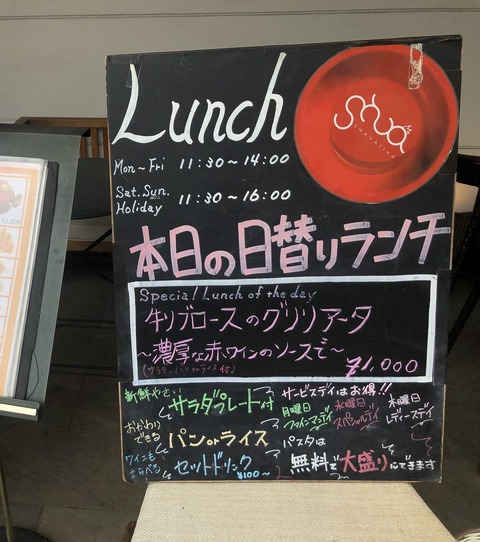 Lunch
Mon~Fri 11:30~14:00
Sat. Sun. Holiday 11:30~16:00
shva
SHAVATIVA
本日の日替りランチ
Special Lunch of the day
牛リブロースのグリリアータ
~濃厚な赤ワインのソースで~
(サラダ、パンorライス付) ¥1,000
新鮮やさい サラダプレート付
おかわりできる パンorライス
ワインもえらべる セットドリンク ¥100~
サービスデイはお得!!
月曜日 ファインマンデイ
水曜日 スペシャルデイ
木曜日 レディースデイ
パスタは
無料で大盛りにできます
¥1,000